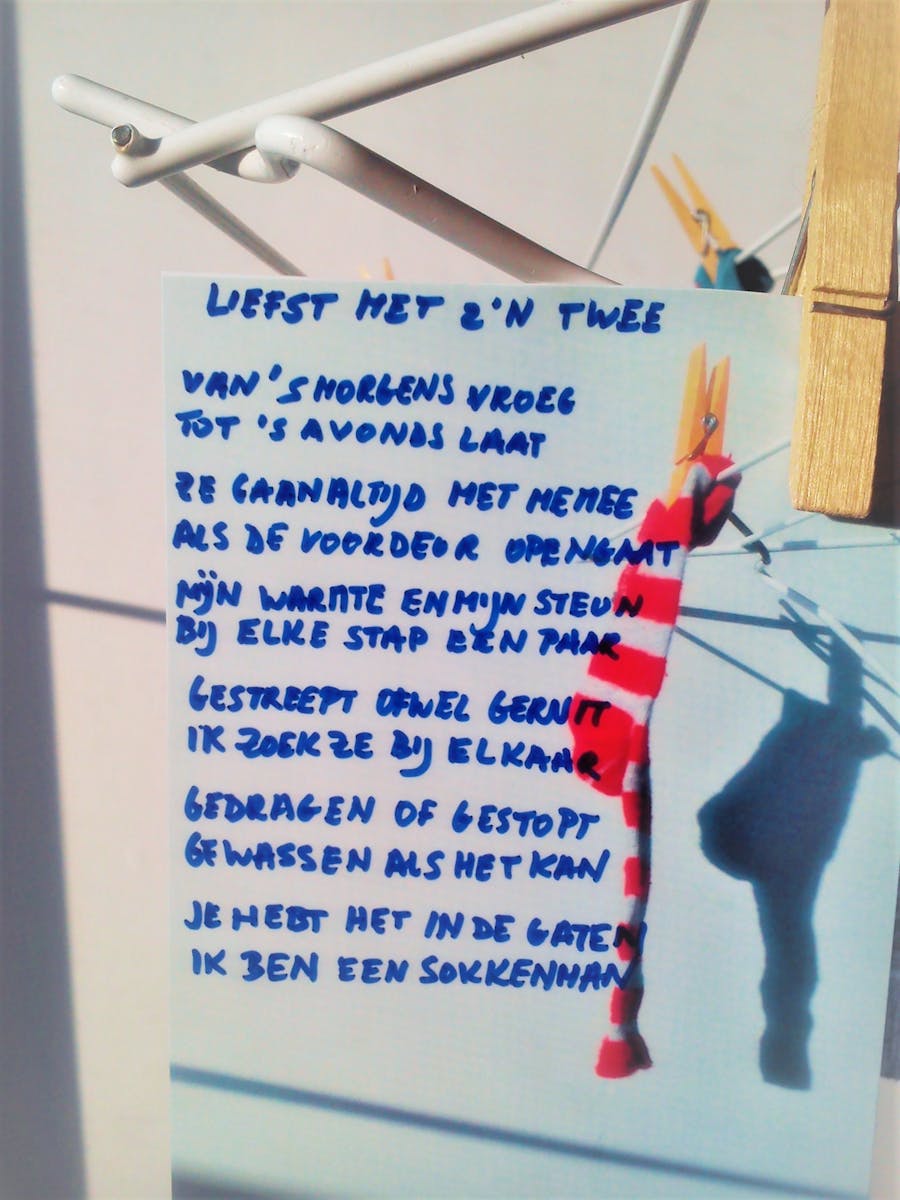 LIEFST MET Z'N TWEE
VAN 'S MORGENS VROEG
TOT 'S AVONDS LAAT
ZE GAAN ALTIJD MET ME MEE
ALS DE VOORDEUR OPENGAAT
MIJN WARMTE EN MIJN STEUN
BIJ ELKE STAP EEN PAAR
GESTREEPT OFWEL GERUIT
IK ZOEK ZE BIJ ELKAAR
GEDRAGEN OF GESTOPT
GEWASSEN ALS HET KAN
JE HEBT HET IN DE GATEN
IK BEN EEN SOKKENMAN